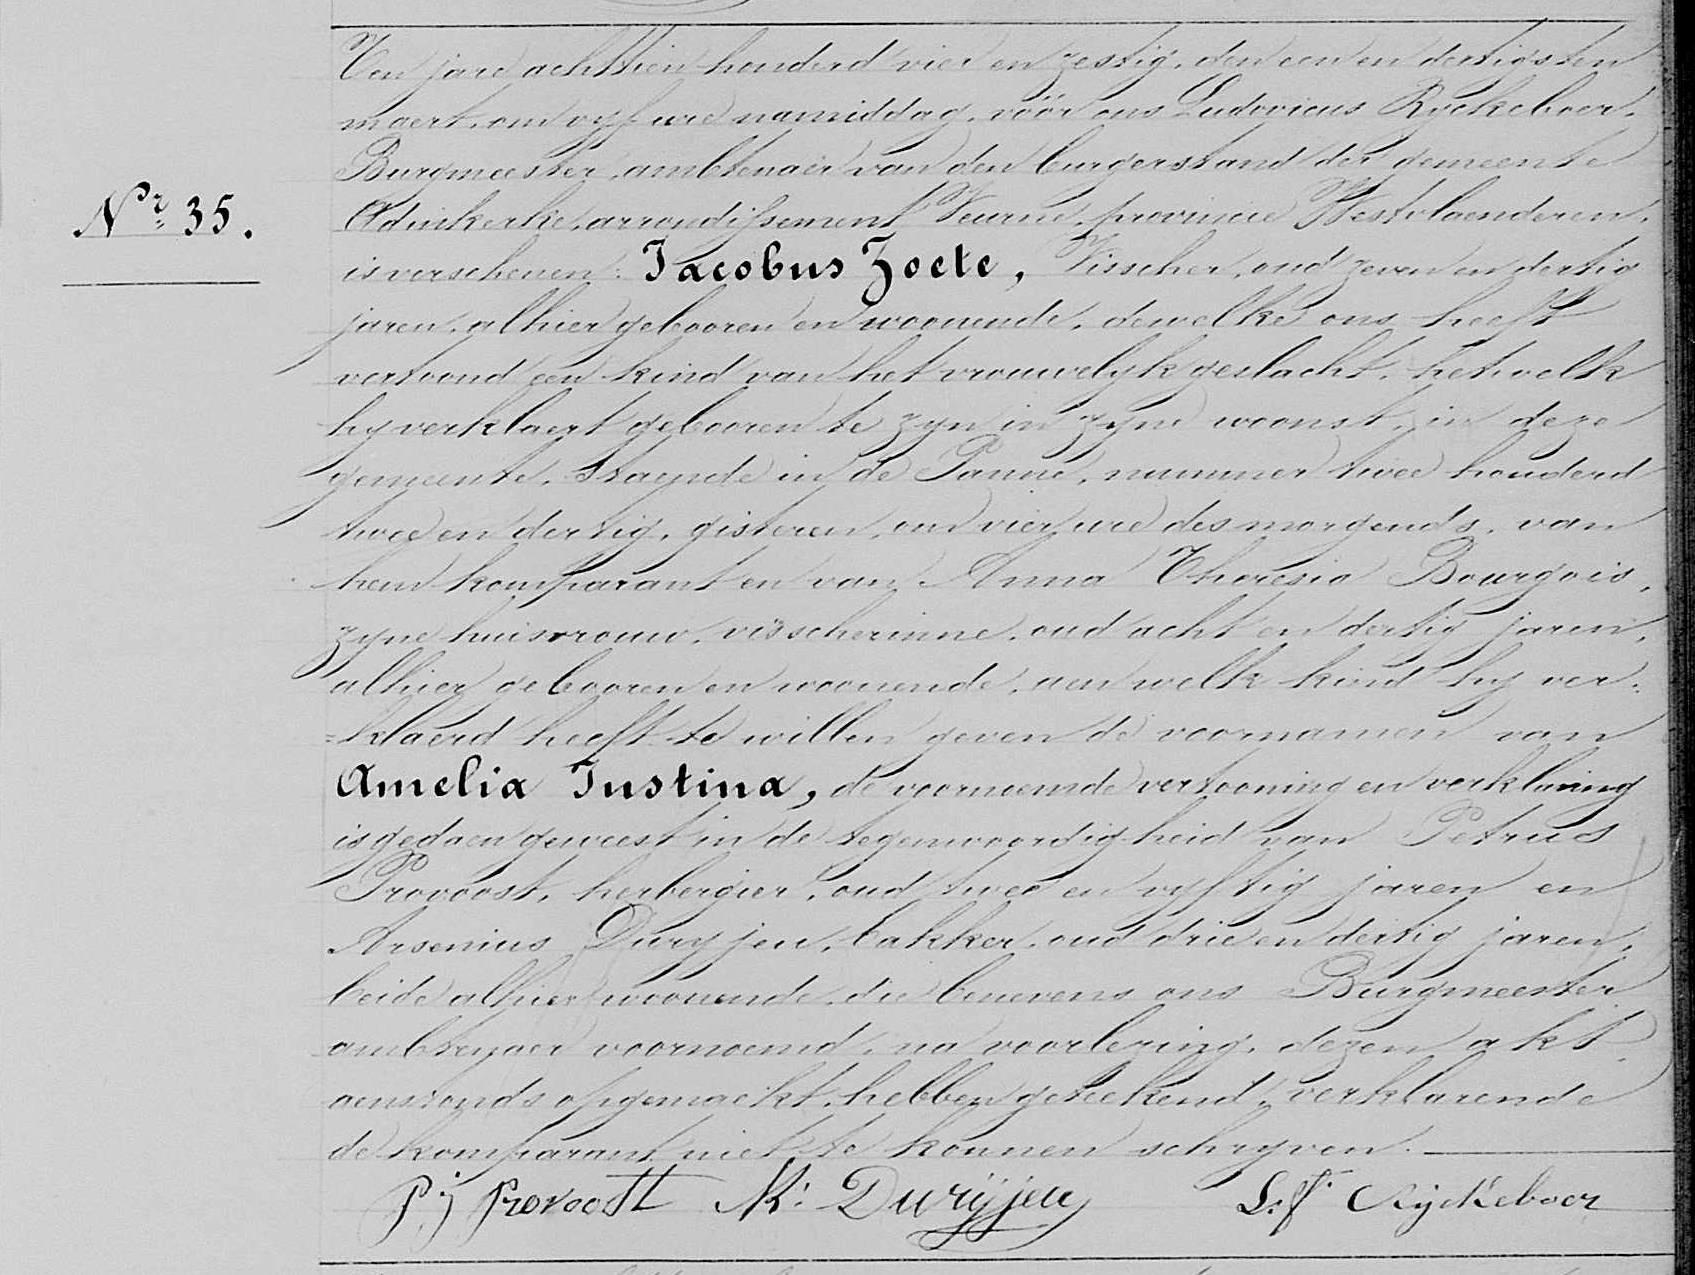 Ten jare achttien honderd vier en zestig, den een en dertigsten
maert, om vyf ure namiddag, vóór ons Ludovicus Ryckeboer,
Burgmeester, ambtenaer van den burgerstand der gemeente
Adinkerke, arrondissement Veurne, provincie Westvlaenderen,
is verschenen: Jacobus Zoete, Visscher, oud zeven en dertig
jaren, alhier gebooren en woonende, dewelke ons heeft
vertoond een kind van het vrouwelyk geslacht, hetwelk
hy verklaert gebooren te zyn in zyne woonst, in deze
gemeente, staende in de Panne, nummer twee honderd
twee en dertig, gisteren, om vier ure des morgends, van
hem komparant en van Anna Theresia Bourgois,
zyne huisvrouw, visscherinne, oud acht en dertig jaren,
alhier gebooren en woonende, aen welk kind hy ver=
=klaerd heeft te willen geven de voornamen van
Amelia Justina, de voornoemde vertooning en verklaring
is gedaen geweest in de tegenwoordigheid van Petrus
Provoost, herbergier, oud twee en vyftig jaren en
Arsenius Duryjeu, bakker, oud drie en dertig jaren,
beide alhier woonende, die benevens ons Burgmeester
ambtenaer voornoemd, na voorlezing, dezen akt
aenstonds opgemaekt, hebben geteekend, verklarende
de komparant niet te konnen schryven.
Nr 35.
P j provoost Duryjeu L.f. Ryckeboer